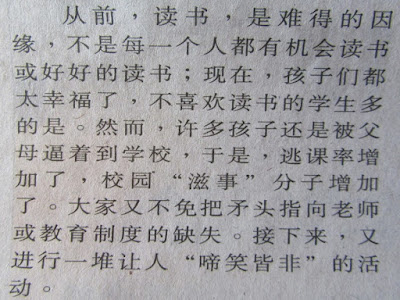 从前，读书，是难得的因
缘，不是每一个人都有机会读书
或好好的读书；现在，孩子们都
太幸福了，不喜欢读书的学生多
的是。然而，许多孩子还是被父
母逼着到学校，于是，逃课率增
加了，校园“滋事”分子增加
了。大家又不免把矛头指向老师
或教育制度的缺失。接下来，又
进行一堆让人“啼笑皆非”的活
动。